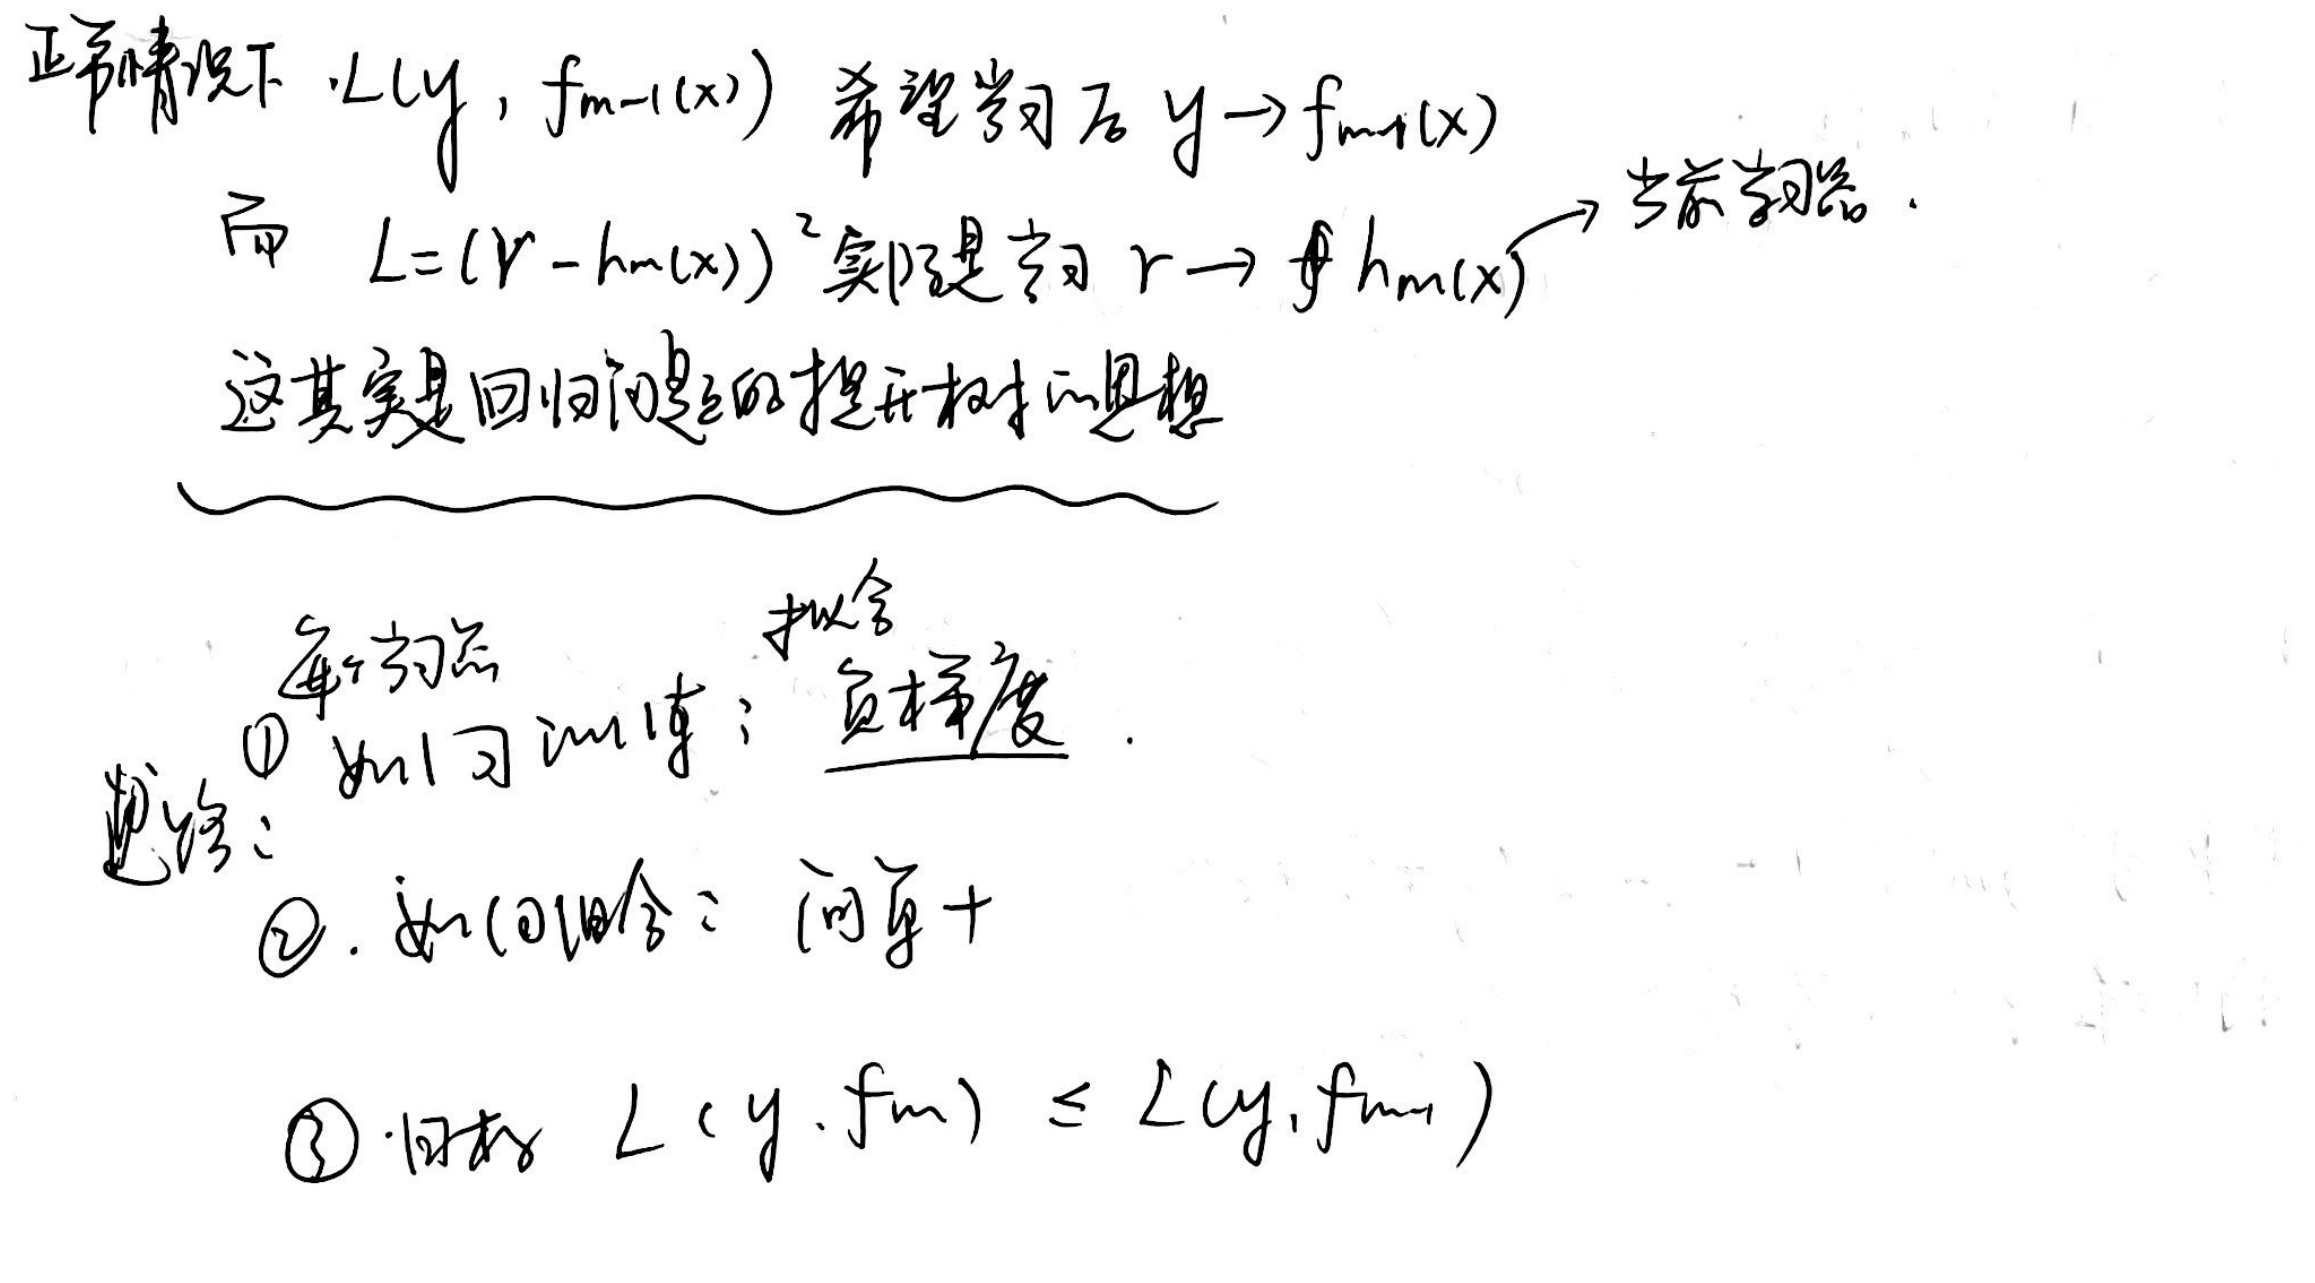 正常情况下 . L(y, fm-1(x)) 希望学习后 y → fm-1(x)
而 L=(r - hm(x))² 实际是学习 r → hm(x) → 当前学习器 .
这其实是回归问题的提升树的思想
思路:
① 每个学习器 如何学习: 拟合负梯度 .
② . 如何组合: 简单 +
③ . 目标 L(y . fm) ≤ L(y, fm-1)